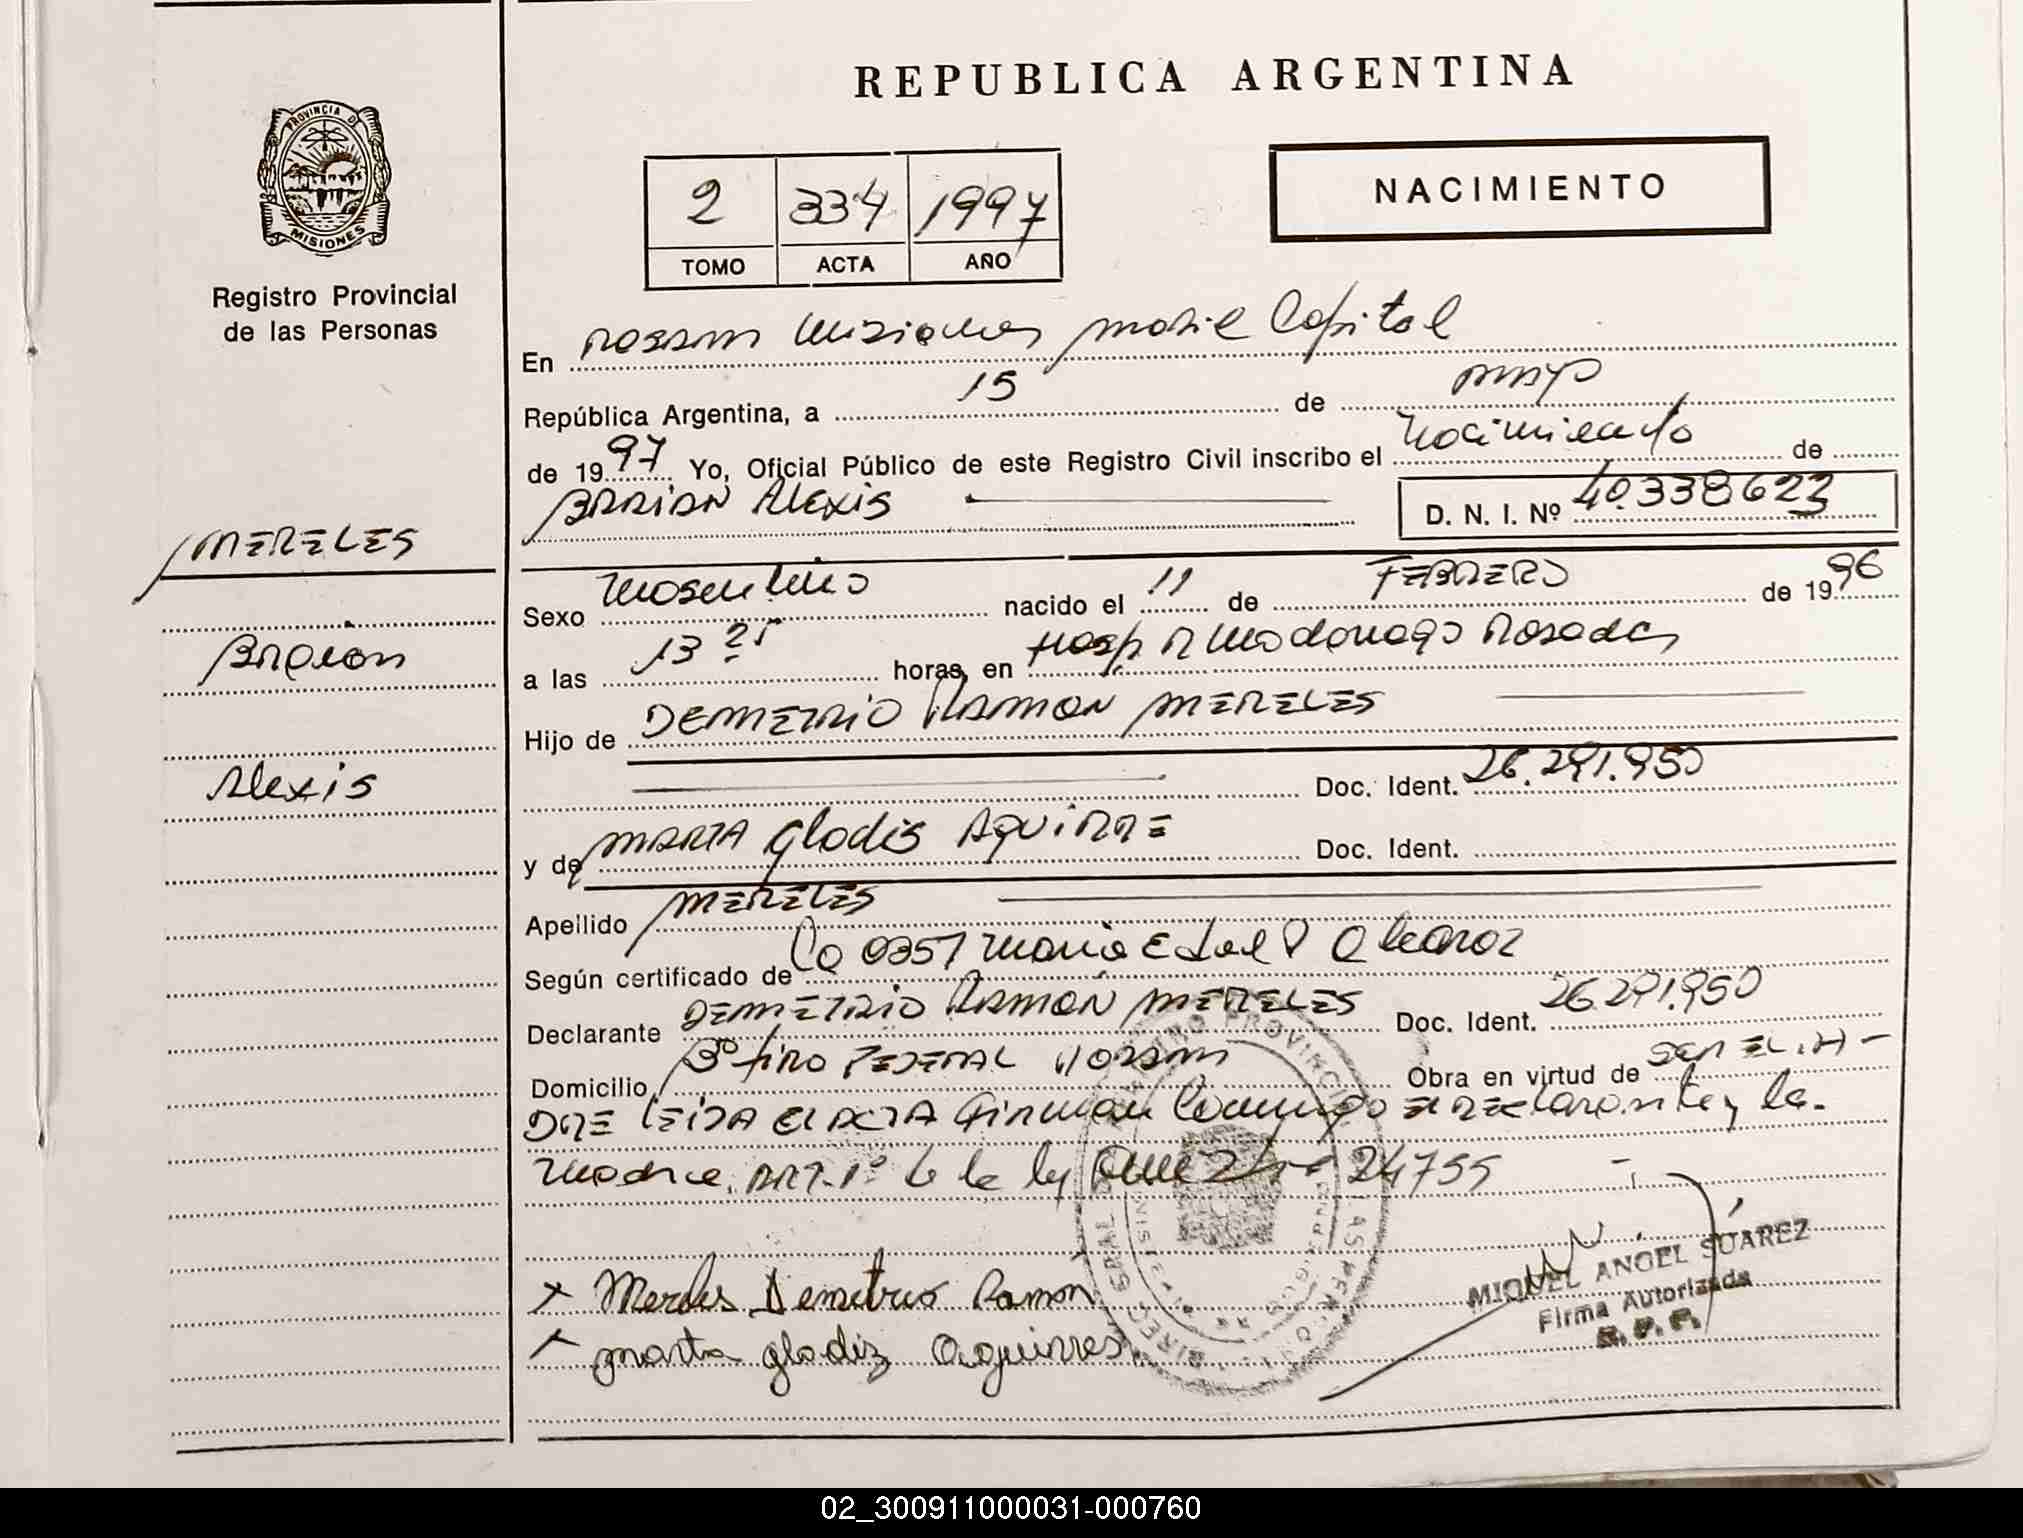 REPUBLICA ARGENTINA
PROVINCIA D
MISIONES
Registro Provincial
de las Personas
2 334 1997
TOMO ACTA AÑO
NACIMIENTO
En Misiones Capital
República Argentina, a 15 de mayo
de 1997 Yo, Oficial Público de este Registro Civil inscribo el Nacimiento de
BRAIAN Alexis D. N. I. Nº 40.338623
MERELES
Braian
Alexis
Sexo Masculino nacido el 11 de FEBRERO de 1996
a las 13 horas, en Hosp R Madariaga Posadas
Hijo de DEMETRIO RAMON MERELES
Doc. Ident. 26.291.950
y de MARTA Gladis AQUIRRE Doc. Ident.
Apellido MERELES
Según certificado de 0357 Maria
Declarante DEMETRIO RAMÓN MERELES Doc. Ident. 26291.950
Domicilio Bº tiro FEDERAL Obra en virtud de SER EL
LEIDA El ACTA Firman Conmigo el declarante y la
Madre. ART. 1º de la ley 24755
Mereles Demetrio Ramon
marta gladiz Aguirres
MIGUEL ANGEL SUAREZ
Firma Autorizada
R. P. P.
02_300911000031-000760